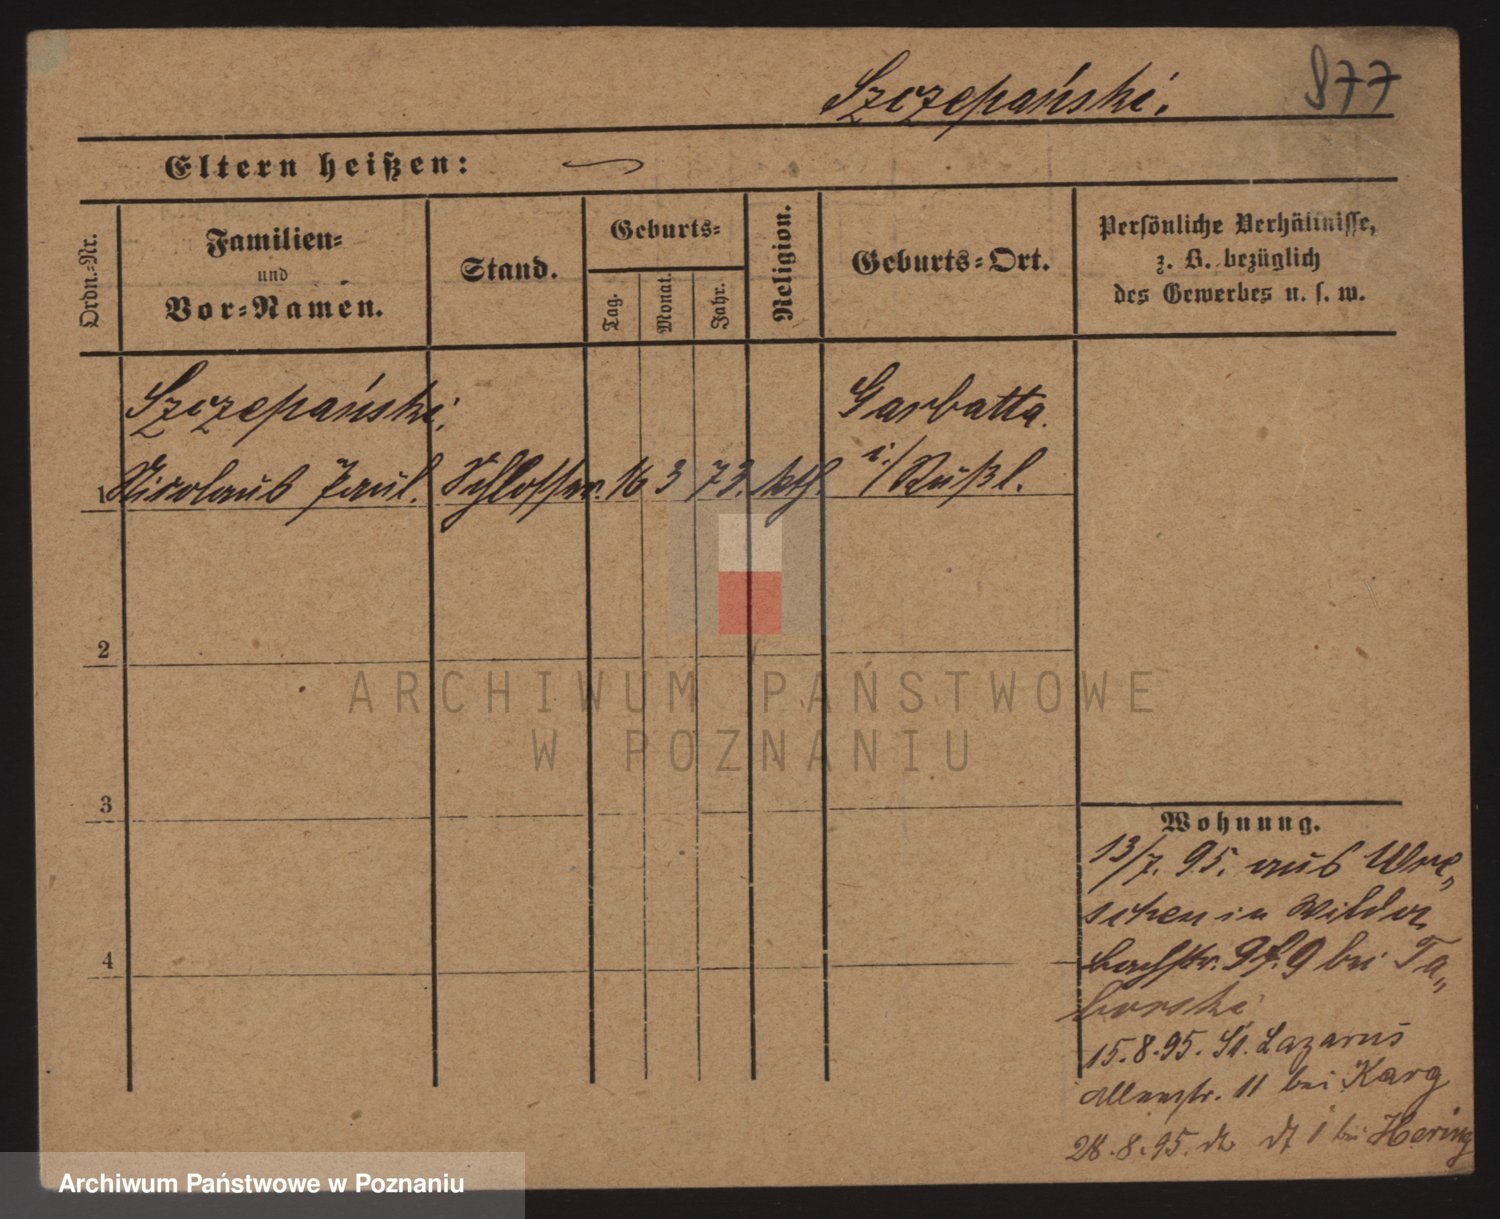 877
Szczepański.
Eltern heißen:
Ordn.=Nr.
Familien=
und
Vor=Namen.
Stand.
Geburts=
Tag.
Monat.
Jahr.
Religion.
Geburts=Ort.
Persönliche Verhältnisse,
z. B. bezüglich
des Gewerbes u. s. w.
Szczepański,
Garbatta
1 Nicolaus Paul. Schlosser. 16 3 73. kth. i./Rußl.
2
3
4
Wohnung.
13/7. 95. aus Wre„
schen in Wilda
bachstr. 9 bei Ta„
borski
15.8.95. St. Lazarus
11 bei Karg
28.8.95. bei Hering
ARCHIWUM PAŃSTWOWE
W POZNANIU
Archiwum Państwowe w Poznaniu